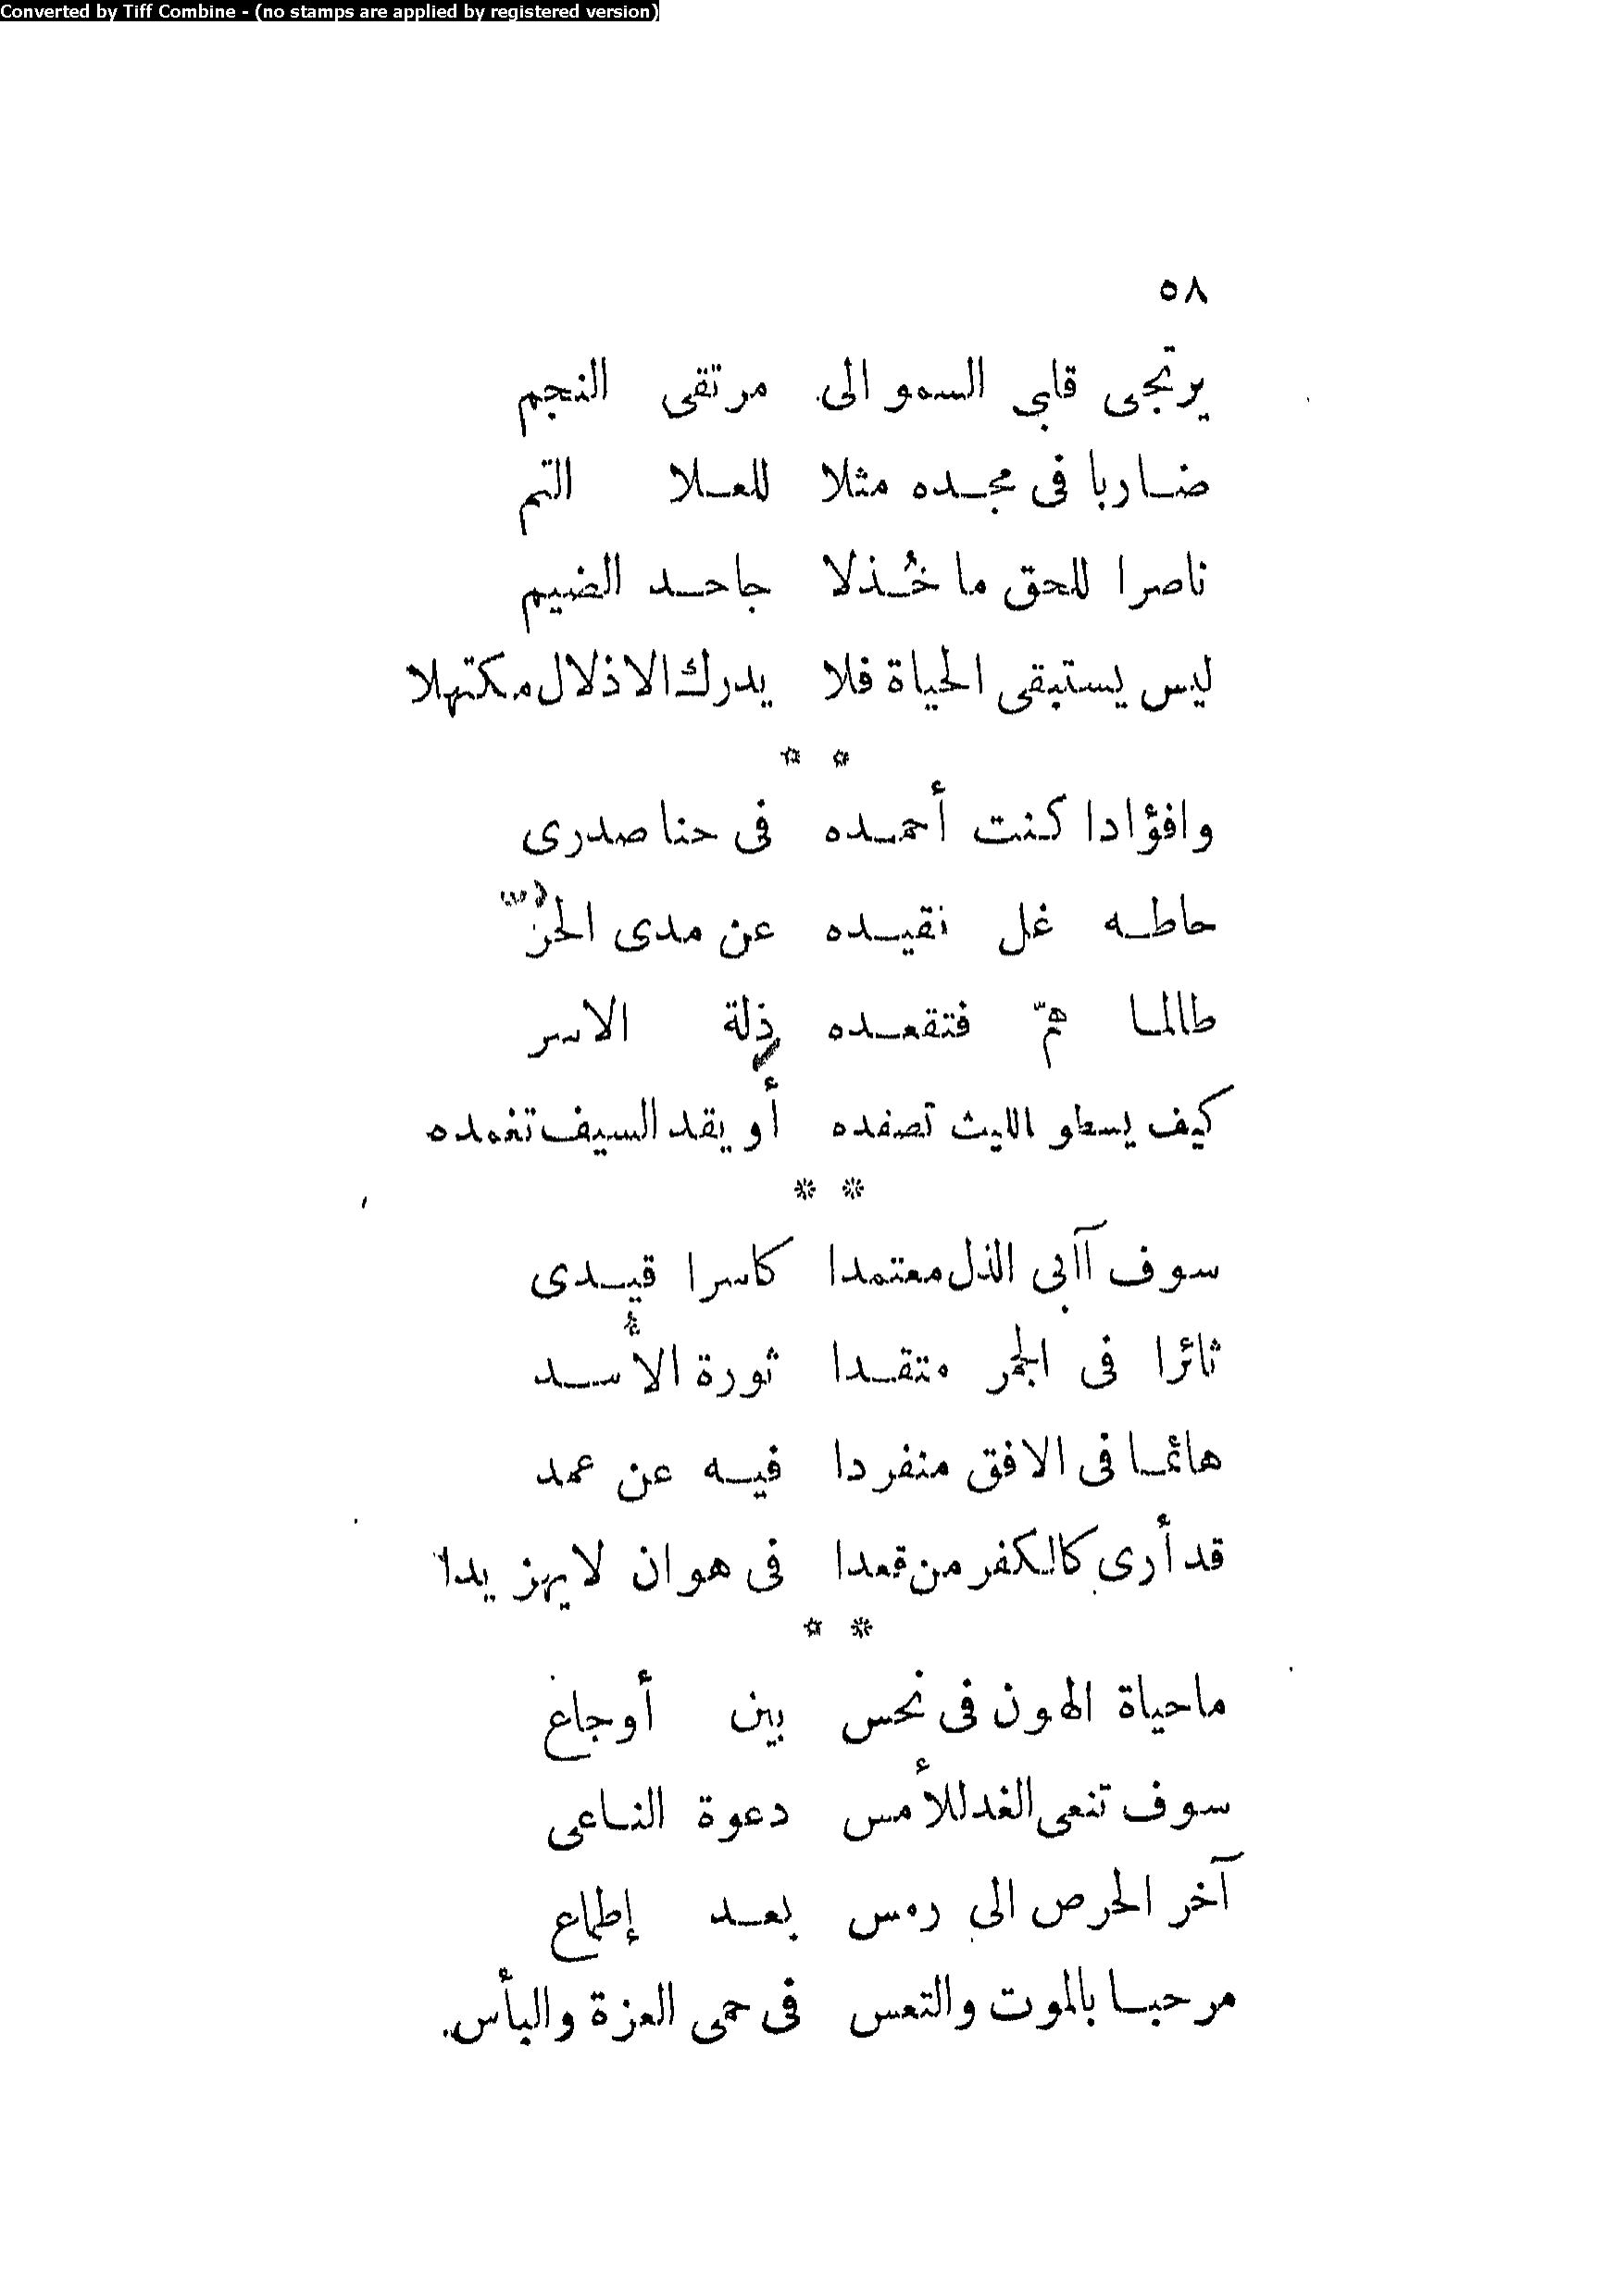 Converted by Tiff Combine - (no stamps are applied by registered version)
٥٨
يرتجى قلبي السمو الى مرتقى النجم
ضاربا فى مجده مثلا للعلا التم
ناصرا للحق ما خُذلا جاحد الضيم
ليس يستبقى الحياة فلا يدرك الاذلال مكتهلا
* *
وافؤادا كنت أحمده فى حنا صدرى
حاطه غل نقيده عن مدى الحرّ
طالما همّ فتقعده ذلة الاسر
كيف يسطو الليث تصفده أو يقد السيف تغمده
* *
سوف آابى الذل معتمدا كاسرا قيدى
ثائرا فى الجمر متقدا ثورة الأسد
هائما فى الافق منفردا فيه عن عمد
قد أرى كالكفر من قعدا فى هوان لايهز يدا
* *
ماحياة الهون فى نحس بين أوجاع
سوف تنعى الغد للأمس دعوة الناعى
آخر الحرص الى رمس بعد إطماع
مرحبا بالموت والتعس فى حمى العزة والبأس.